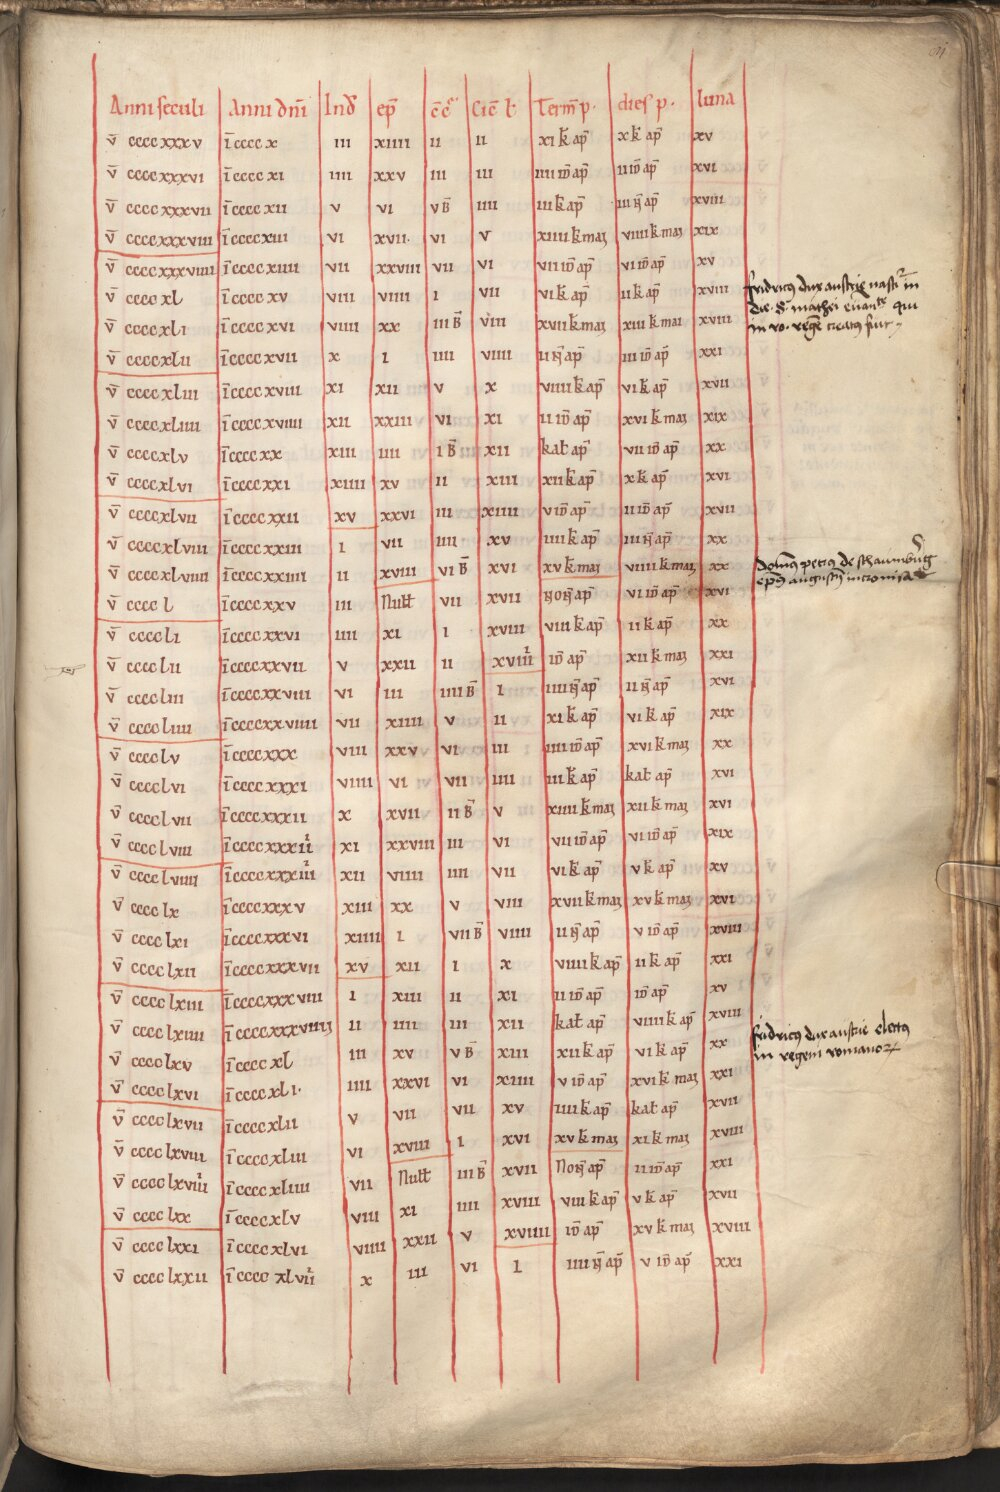 Anni seculi anni dn̄i Ind ep̄ c̄c̄ Cic̄ l Term̄ p. dies p. luna
v̄ ccccxxxv ī cccc x iii xiiii ii ii xi k̄ ap̄ x k̄ ap̄ xv
v̄ ccccxxxvi ī cccc xi iiii xxv iii iii iiii id̄ ap̄ ii id̄ ap̄ xvi
v̄ ccccxxxvii ī cccc xii v vi v B̄ iiii iii k̄ ap̄ iii n̄ ap̄ xviii
v̄ ccccxxxviii ī ccccxiii vi xvii vi v xiiii k̄ maȝ viiii k̄ maȝ xix
v̄ ccccxxxviiii ī cccc xiiii vii xxviii vii vi vii id̄ ap̄ vi id̄ ap̄ xv
v̄ cccc xl ī cccc xv viii viiii i vii vi k̄ ap̄ ii k̄ ap̄ xviii
v̄ ccccxli ī cccc xvi viiii xx iii B̄ viii xvii k̄ maȝ xiii k̄ mai xviii
v̄ ccccxlii ī cccc xvii x i iiii viiii ii n̄ ap̄ iii id̄ ap̄ xxi
v̄ ccccxliii ī cccc xviii xi xii v x viiii k̄ ap̄ vi k̄ ap̄ xvii
v̄ ccccxliiii ī cccc xviiii xii xxiii vi xi ii id̄ ap̄ xvi k̄ maȝ xix
v̄ ccccxlv ī cccc xx xiii iiii i B̄ xii kal ap̄ vii id̄ ap̄ xx
v̄ ccccxlvi ī cccc xxi xiiii xv ii xiii xii k̄ ap̄ x k̄ ap̄ xvi
v̄ ccccxlvii ī cccc xxii xv xxvi iii xiiii v id̄ ap̄ ii id̄ ap̄ xvii
v̄ ccccxlviii ī cccc xxiii i vii iiii xv iiii k̄ ap̄ iiii n̄ ap̄ xx
v̄ ccccxlviiii ī cccc xxiiii ii xviii vi B̄ xvi xv k̄ maȝ viiii k̄ maȝ xx
v̄ cccc l ī cccc xxv iii Null vii xvii non̄ ap̄ vi id̄ ap̄ xvi
v̄ cccc li ī cccc xxvi iiii xi i xviii viii k̄ ap̄ ii k̄ ap̄ xx
v̄ cccc lii ī cccc xxvii v xxii ii xviiii id̄ ap̄ xii k̄ maȝ xxi
v̄ cccc liii ī cccc xxviii vi iii iiii B̄ i iiii n̄ ap̄ ii n̄ ap̄ xvi
v̄ cccc liiii ī cccc xxviiii vii xiiii v ii xi k̄ ap̄ vi k̄ ap̄ xix
v̄ cccc lv ī cccc xxx viii xxv vi iii iiii id̄ ap̄ xvi k̄ maȝ xx
v̄ cccc lvi ī cccc xxxi viiii vi vii iiii iii k̄ ap̄ kal ap̄ xvi
v̄ cccc lvii ī cccc xxxii x xvii ii B̄ v xiiii k̄ maȝ xii k̄ maȝ xvi
v̄ cccc lviii ī cccc xxxiii xi xxviii iii vi vii id̄ ap̄ vi id̄ ap̄ xix
v̄ cccc lviiii ī cccc xxxiiii xii viiii iiii vii vi k̄ ap̄ v k̄ ap̄ xv
v̄ cccc lx ī cccc xxxv xiii xx v viii xvii k̄ maȝ xv k̄ maȝ xvi
v̄ cccc lxi ī cccc xxxvi xiiii i vii B̄ viiii ii n̄ ap̄ v id̄ ap̄ xviii
v̄ cccc lxii ī cccc xxxvii xv xii i x viiii k̄ ap̄ ii k̄ ap̄ xxi
v̄ cccc lxiii ī cccc xxxviii i xiii ii xi ii id̄ ap̄ id̄ ap̄ xv
v̄ cccc lxiiii ī cccc xxxviiii ii iiii iii xii kal ap̄ viiii k̄ ap̄ xviii
v̄ cccc lxv ī cccc xl iii xv v B̄ xiii xii k̄ ap̄ vi k̄ ap̄ xx
v̄ cccc lxvi ī cccc xli iiii xxvi vi xiiii v id̄ ap̄ xvi k̄ maȝ xxi
v̄ cccc lxvii ī cccc xlii v vii vii xv iiii k̄ ap̄ kal ap̄ xvii
v̄ cccc lxviii ī cccc xliii vi xviii i xvi xv k̄ maȝ xi k̄ maȝ xviii
v̄ cccc lxviiii ī cccc xliiii vii Null iii B̄ xvii Non̄ ap̄ ii id̄ ap̄ xxi
v̄ cccc lxx ī cccc xlv viii xi iiii xviii viii k̄ ap̄ v k̄ ap̄ xvii
v̄ cccc lxxi ī cccc xlvi viiii xxii v xviiii id̄ ap̄ xv k̄ maȝ xviii
v̄ cccc lxxii ī cccc xlvii x iii vi i iiii n̄ ap̄ v id̄ ap̄ xxi
fridricus dux austrie
die S mathei qui
in ro. rege
petrus de schaumberg
ep̄us
fridricus dux austrie electus
in regem romanoꝝ